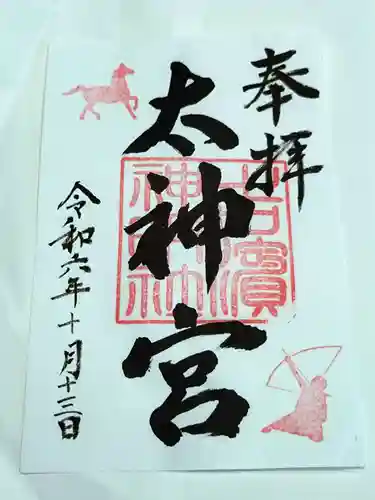 奉拝
吉濱
神明社
太神宮
令和六年十月十三日